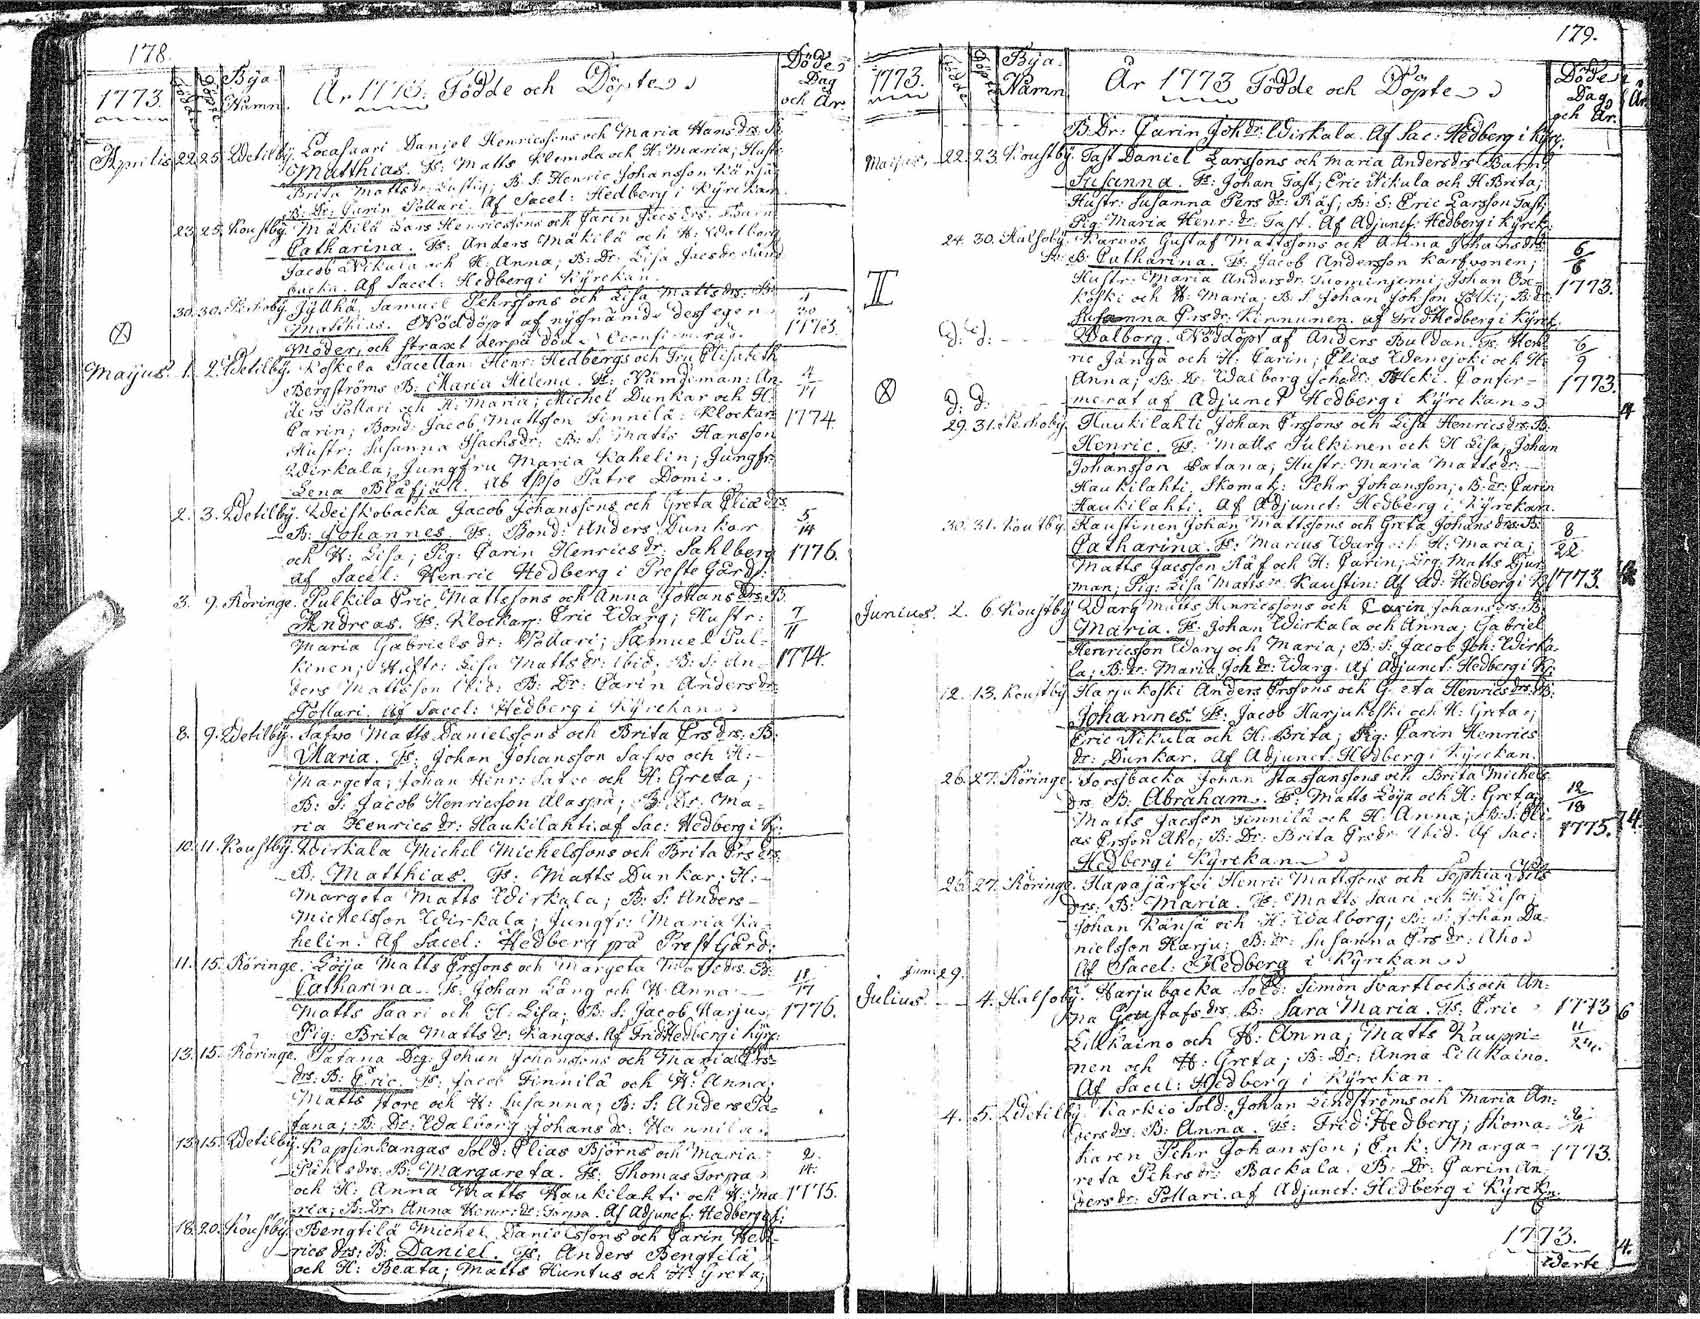 178.
1773. Födde Döpte Bya Namn. År 1773. Födde och Döpte Döde Dag och År.
Aprilis 22. 25. Wetilby. Daniel Henricssons och Maria Hans drs. B.
Matthias. Fs: Matts Klemola och H: Maria; Hustr:
Brita Matts dr: B. S: Henric Johansson
B: Dr: Carin Pollari. Af Sacel: Hedberg i Kyrckan.
23. 25. Koustby. Mäkilä Lars Henricssons och Carin Jacs drs. Barn
Catharina. Fs: Anders Mäkilä och H: Walborg
Jacob Nikula och H: Anna; B: Dr: Lisa Jacs dr
backa. Af Sacel: Hedberg i Kyrckan.
30. 30. Perhoby. Jyllhä Samuel Pehrssons och Lisa Matts drs: B:
Matthias. Nöddöpt af egen 1773.
Moder, och straxt derpå död.
Maijus. 1. 2. Wetilby. Koskela Sacellan: Henr: Hedbergs och Fru Elisabeth
Bergströms B: Maria Helena. Fs: Nämdeman: An- 4/17
ders Pollari och H: Maria; Michel Dunkar och H:
Carin; Bond: Jacob Mattsson Finnilä: Klockar: 1774.
Hustr: Susanna Isachs dr: B: S: Matts Hansson
Wirkala; Jungfru Maria Kahelin; Jungfr:
Lena Blåfjäll. Ab Ipso Patre Domi.
2. 3. Wetilby. Weiskobacka Jacob Johanssons och Greta Elie drs.
B: Johannes. Fs: Bond: Anders Dunkar 5/14
och H: Lisa; Pig: Carin Henrics dr: Sahlberg 1776.
af Sacel: Henric Hedberg i Preste Gård:
3. 9. Röringe. Pulkila Eric Mattssons och Anna Johans drs. B.
Andreas. Fs: Klockar: Eric Warg; Hustr: 7/11
Maria Gabriels dr: Pollari; Samuel Pul-
kinen; Hustr: Lisa Matts dr: Ibid; B: S: An- 1774.
ders Mattsson Ibid: B: Dr: Carin Anders dr:
Pollari. Af Sacel: Hedberg i Kyrckan
8. 9. Wetilby. Safwo Matts Danielssons och Brita Ers drs. B:
Maria. Fs: Johan Johansson Safwo och H:
Margeta; Johan Henr: Safwo och H: Greta;
B: S: Jacob Henricsson Alaspää; B: Dr: Ma-
ria Henrics dr: Haukilahti. af Sac: Hedberg i Ky:
10. 11. Koustby. Wirkala Michel Michelssons och Brita Ers drs.
B: Matthias. Fs: Matts Dunkar; H:
Margeta Matts Wirkala; B: S: Anders
Michelsson Wirkala; Jungfr: Maria Ka-
helin. Af Sacel: Hedberg på Prest Gård:
11. 15. Röringe. Löija Matts Erssons och Margeta Matts drs. B:
Catharina. Fs: Johan Lång och H: Anna
Matts Saari och H: Lisa; B: S: Jacob Harju, 1776.
Pig: Brita Matts dr: Kangas. Af Frid: Hedberg i Kyrc:
13. 15. Röringe. Patana Johan Johanssons och Maria Ers-
drs. B: Eric. Fs: Jacob Finnilä och H: Anna;
Matts Store och H: Susanna; B: S: Anders Pa-
tana; B: Dr: Walborg Johans dr: Hannila.
13. 15. Wetilby. Kapsinkangas Sold: Elias Björns och Maria
Påhls drs. B: Margareta. Fs: Thomas Torppa 2/14
och H: Anna Matts Haukilahti och H: Ma 1775.
ria; B: Dr: Anna Henr: dr: Torpa. Af Adjunct: Hedberg
18. 20. Koustby. Bengtilä Michel Danielssons och Carin Hen-
rics drs: B: Daniel. Fs: Anders Bengtilä
och H: Beata; Matts Huntus och H: Greta;
179.
1773. Födde Döpte Bya Namn År 1773 Födde och Döpte Döde Dag och År.
B. Dr: Carin Joh dr: Wirkala. Af Sac: Hedberg i Kyrc:
Maijus. 22. 23. Koustby. Tast Daniel Larssons och Maria Anders drs Barn
Susanna. Fs: Johan Tast; Eric Nikula och H Brita;
Hustr: Susanna Pers dr: Räf; B: S: Eric Larsson Tast;
Pig: Maria Henr: dr: Tast. Af Adjunct: Hedberg i Kyrck:
24. 30. Halsoby. Karvos Gustaf Mattssons och Anna Johans drs
B: Catharina. Fs: Jacob Andersson Karfvonen; 6/6
Hustr: Maria Anders dr: Tuominjemi; Johan Ox- 1773.
koski och H: Maria; B. S Johan Johsson Pölki; B: dr:
Susanna Ers dr: Kinnunen. af Frid: Hedberg i Kyrc:
d: d: Walborg. Nöddöpt af Anders Buldan. Fs: Hen- 6/9
ric Jänga och H: Carin; Elias Wenejoki och H:
Anna; B: Dr: Walborg Johs dr: Confir- 1773.
d: d: merat af Adjunct Hedberg i Kyrckan
29. 31. Perhoby. Haukilahti Johan Erssons och Lisa Henrics drs. B:
Henric. Fs: Matts Pulkinen och H Lisa; Johan
Johansson Patana; Hustr: Maria Matts dr:
Haukilahti, Skomak: Pehr Johansson; B: dr: Carin
Haukilahti. Af Adjunct: Hedberg i Kyrckan.
30. 31. Koustby. Kaustinen Johan Mattssons och Greta Johans drs. B:
Catharina. Fs: Marcus Warg och H: Maria; 8/22
Matts Jacsson Räf och H: Carin; Drg: Matts Djur-
man; Pig: Lisa Matts dr: Kaustin: Af Ad: Hedberg i K: 1773.
Junius. 2. 6. Koustby. Warg Matts Henricssons och Carin Johans drs. B.
Maria. Fs: Johan Wirkala och Anna; Gabriel
Henricsson Warg och Maria; B: S: Jacob Joh: Wirka-
la; B: Dr: Maria Joh dr: Warg. Af Adjunct: Hedberg i K:
12. 13. Koustby. Harjukoski Anders Erssons och Greta Henrics drs. B:
Johannes. Fs: Jacob Harjukoski och H: Greta;
Eric Nikula och H: Brita; Pig: Carin Henrics
dr: Dunkar. Af Adjunct: Hedberg i Kyrckan.
26. 27. Röringe. Forsbacka Johan Staffanssons och Brita Michels
drs. B: Abraham. Fs: Matts Löija och H: Greta; 12/18
Matts Jacsson Finnilä och H: Anna; B: S: Eli-
as Ersson Aho; B: Dr: Brita Ers dr Ibid. Af Sac: 1775.
Hedberg i Kyrckan
26. 27. Röringe. Hapajärfvi Henric Mattssons och Sophia
drs. B: Maria. Fs: Matts Sauri och H: Lisa;
Johan Känsä och H: Walborg; B: S: Johan Da-
nielsson Harju; B: Dr: Susanna Ers dr: Aho
Af Sacel: Hedberg i Kyrckan
Juni 29.
Julius. 4. Halsoby. Harjubacka Sold: Simon Svartlocks och An-
na Gustafs drs. B: Sara Maria. Fs: Eric 1773
Lillkaino och H: Anna; Matts Kauppi- 11/24.
nen och H: Greta; B: Dr: Anna Lillkaino.
Af Sacel: Hedberg i Kyrckan.
4. 5. Wetilby. Karkio Sold: Johan Lindströms och Maria An-
ders drs. B: Anna. Fs: Fred: Hedberg; Skoma-
karen Pehr Johansson; Enk: Marga- 1773.
reta Pehrs dr: Backala. B: Dr: Carin An-
ders dr: Pollari. af Adjunct: Hedberg i Kyrckn.
1773.
werte